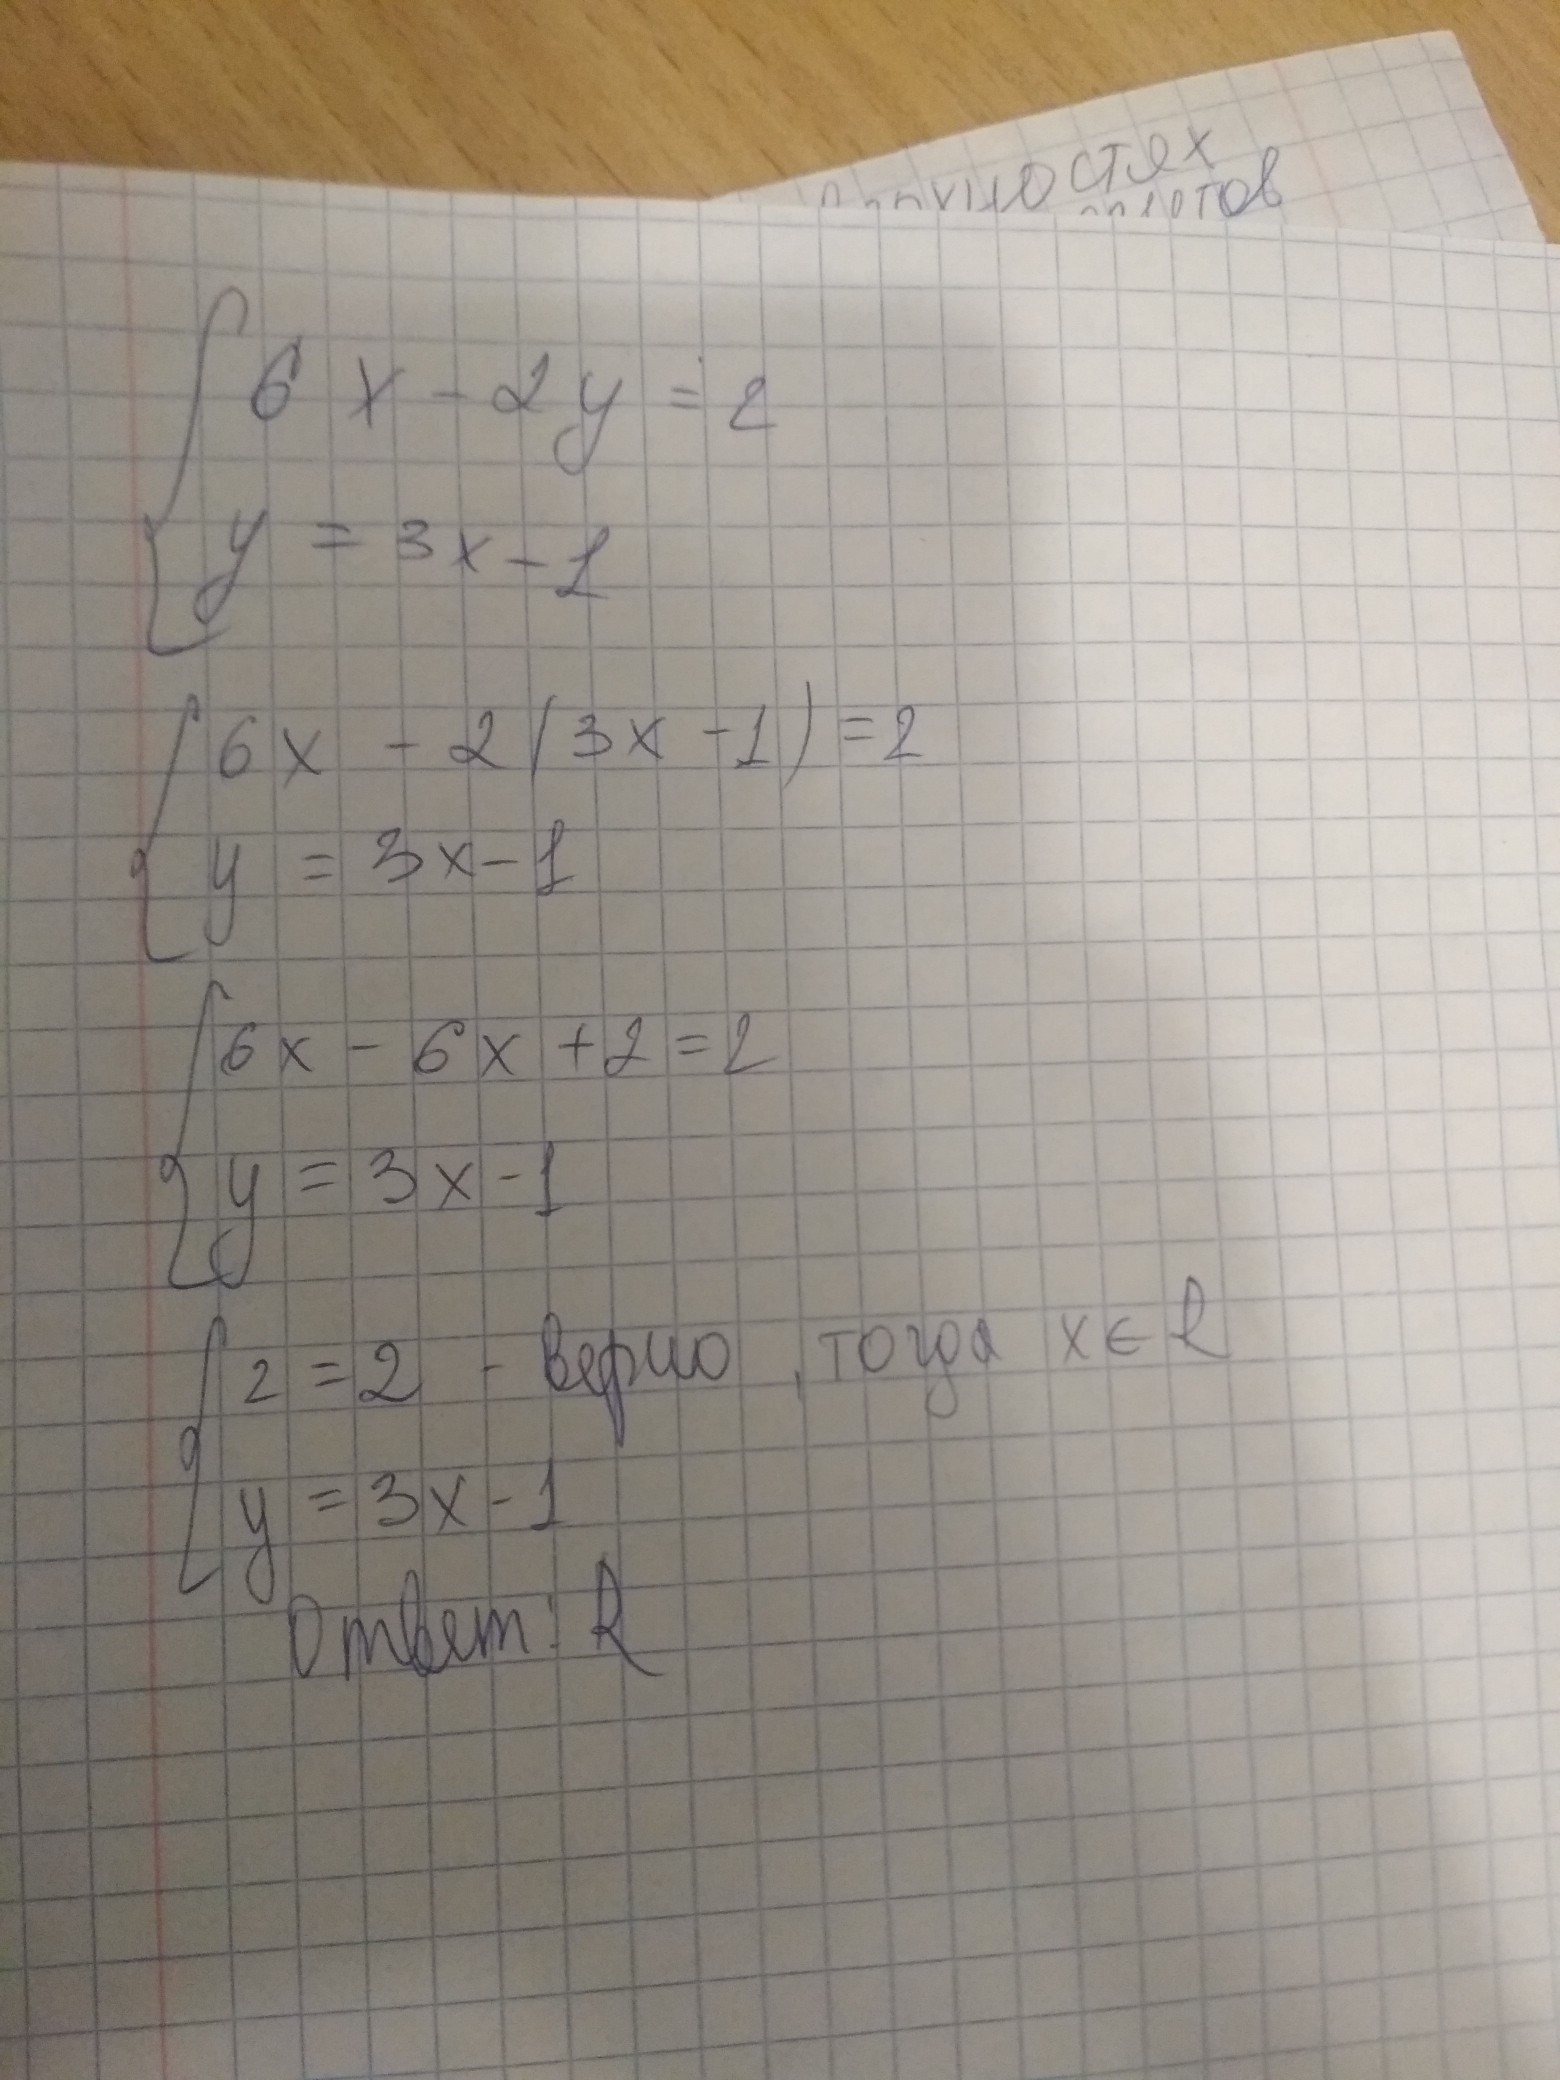 ностях
етов
{ 6x - 2y = 2
y = 3x - 1
{ 6x - 2(3x - 1) = 2
y = 3x - 1
{ 6x - 6x + 2 = 2
y = 3x - 1
{ 2 = 2 - верно, тогда x ∈ R
y = 3x - 1
Ответ: R